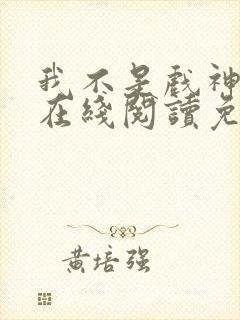 我不是戲神
在綫閱讀免
黃培强